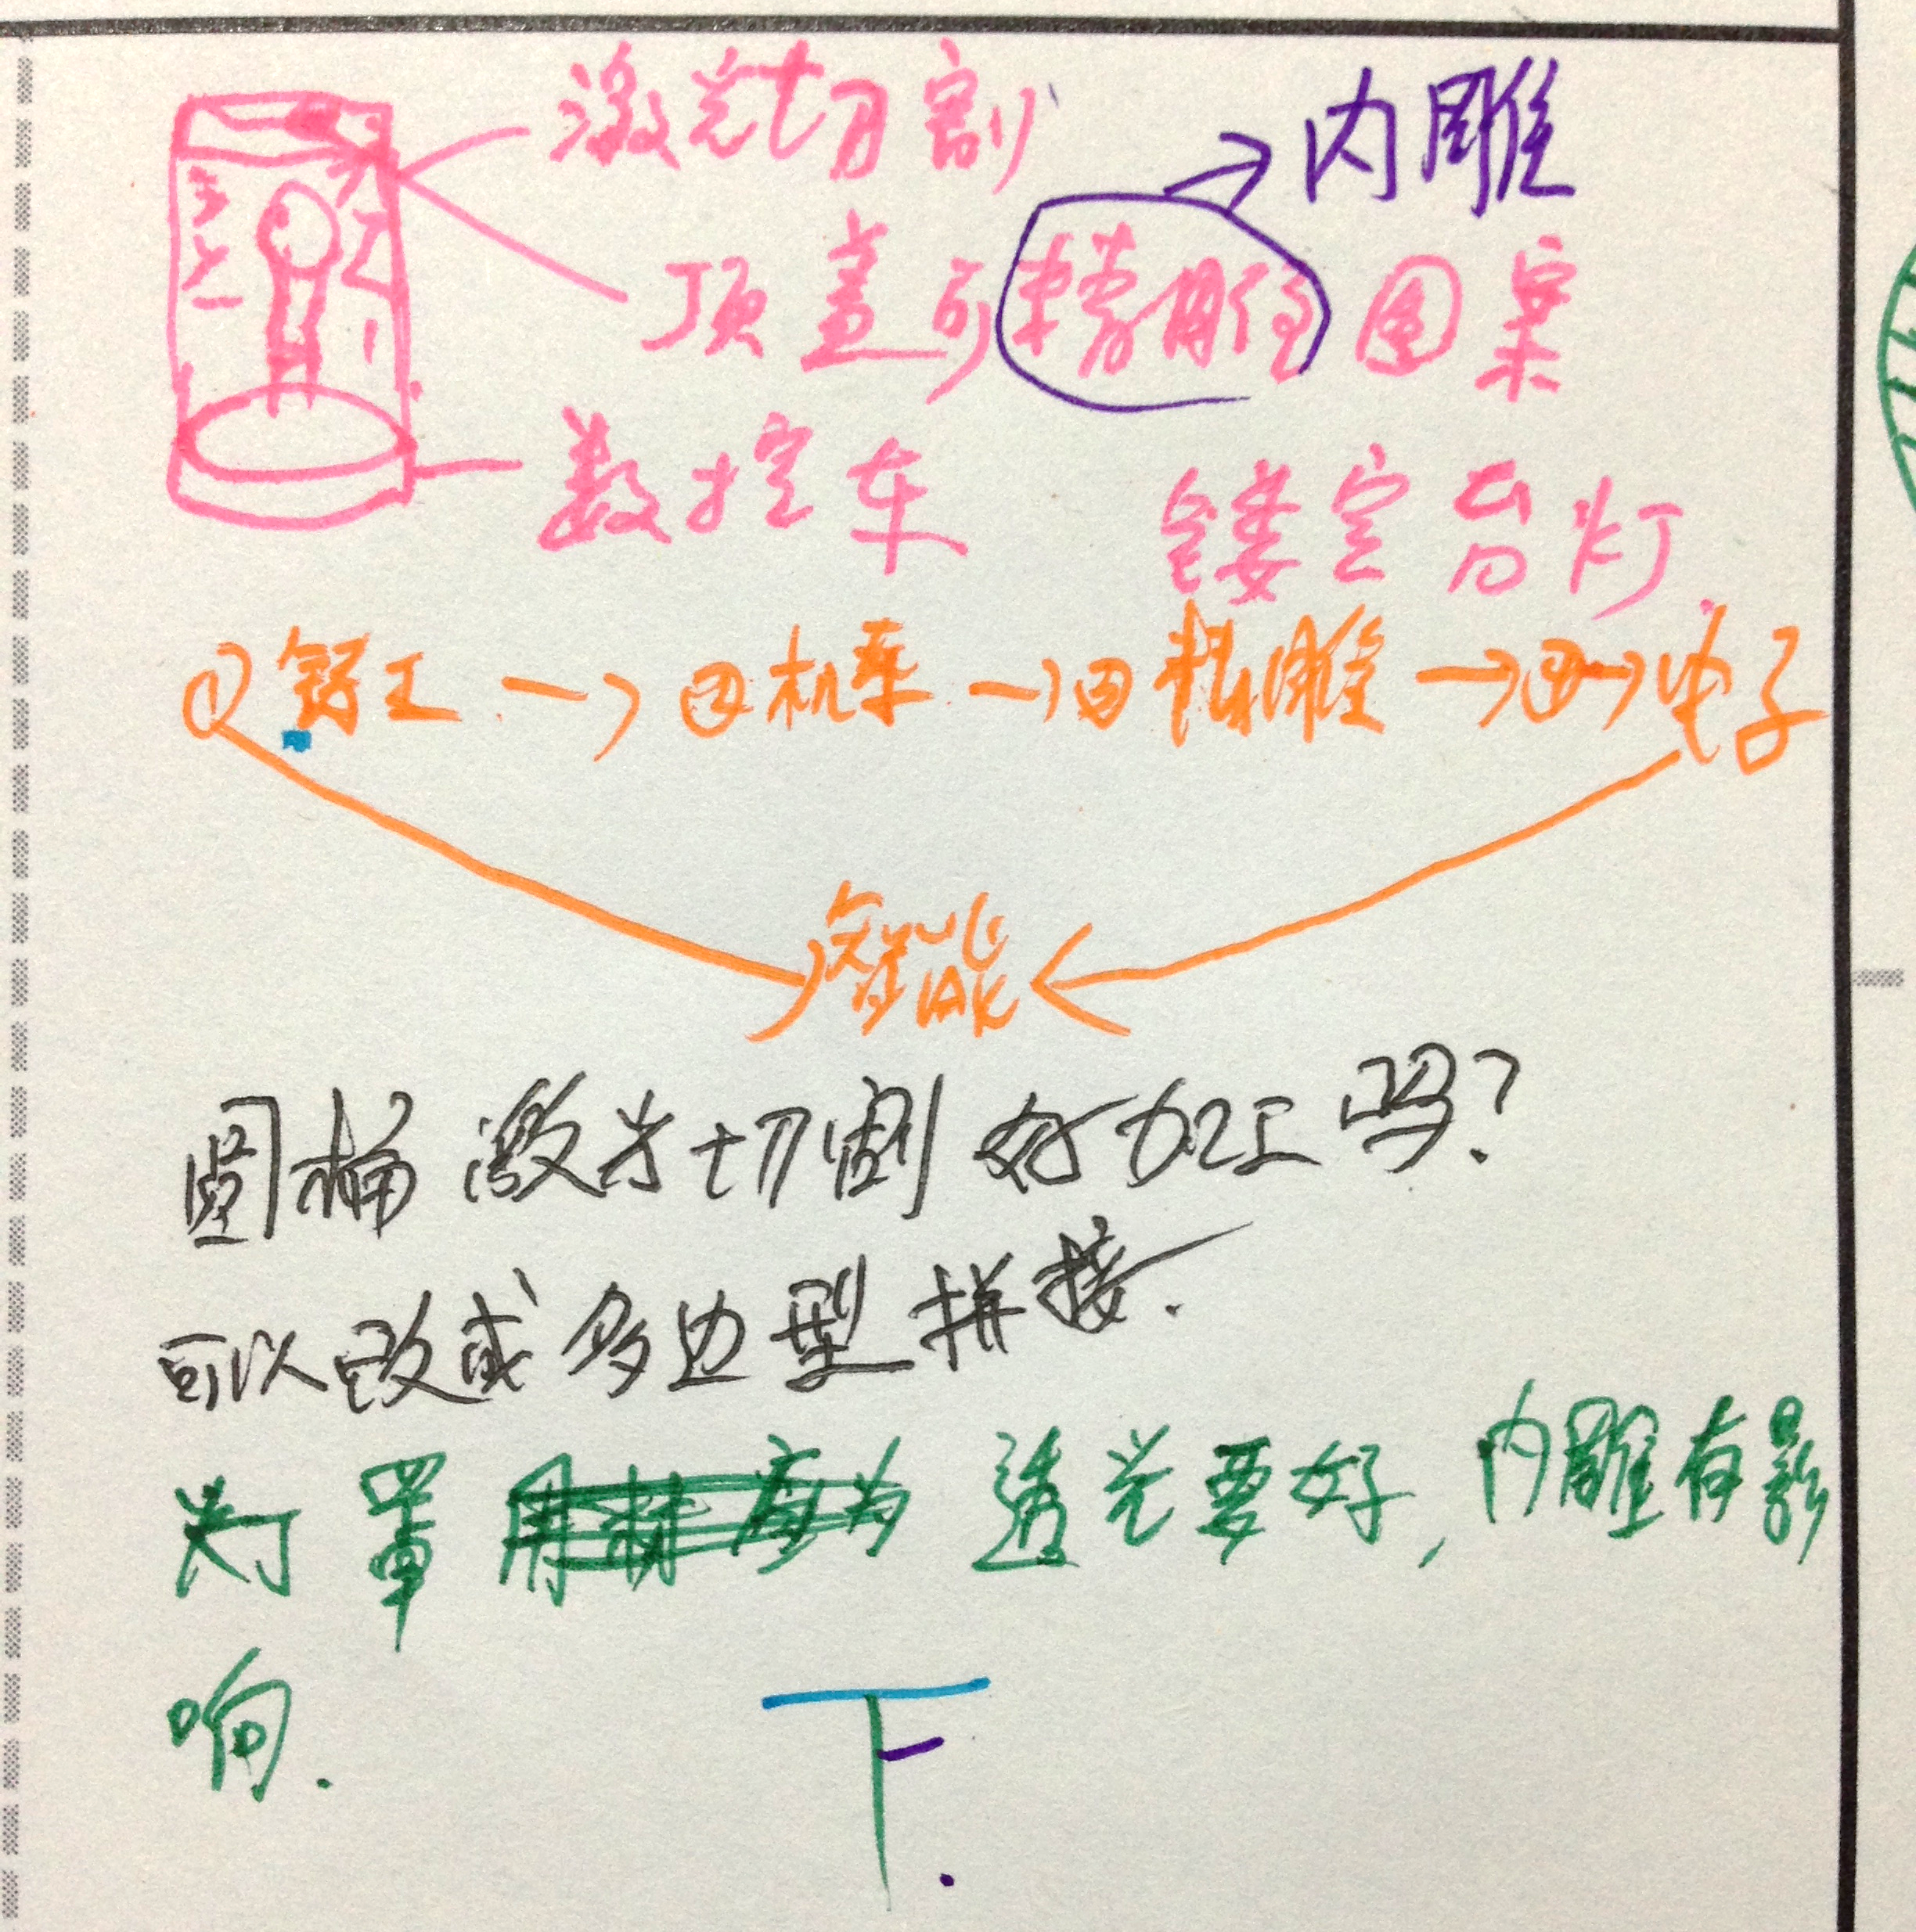 激光切割
→内雕
顶盖可精雕图案
数控车
镂空台灯.
①钳工→②机车→③精雕→④→电子
智能
圆桶激光切割好加工吗?
可以改成多边型拼接.
灯罩用材应为透光要好,内雕有影
响.
下.